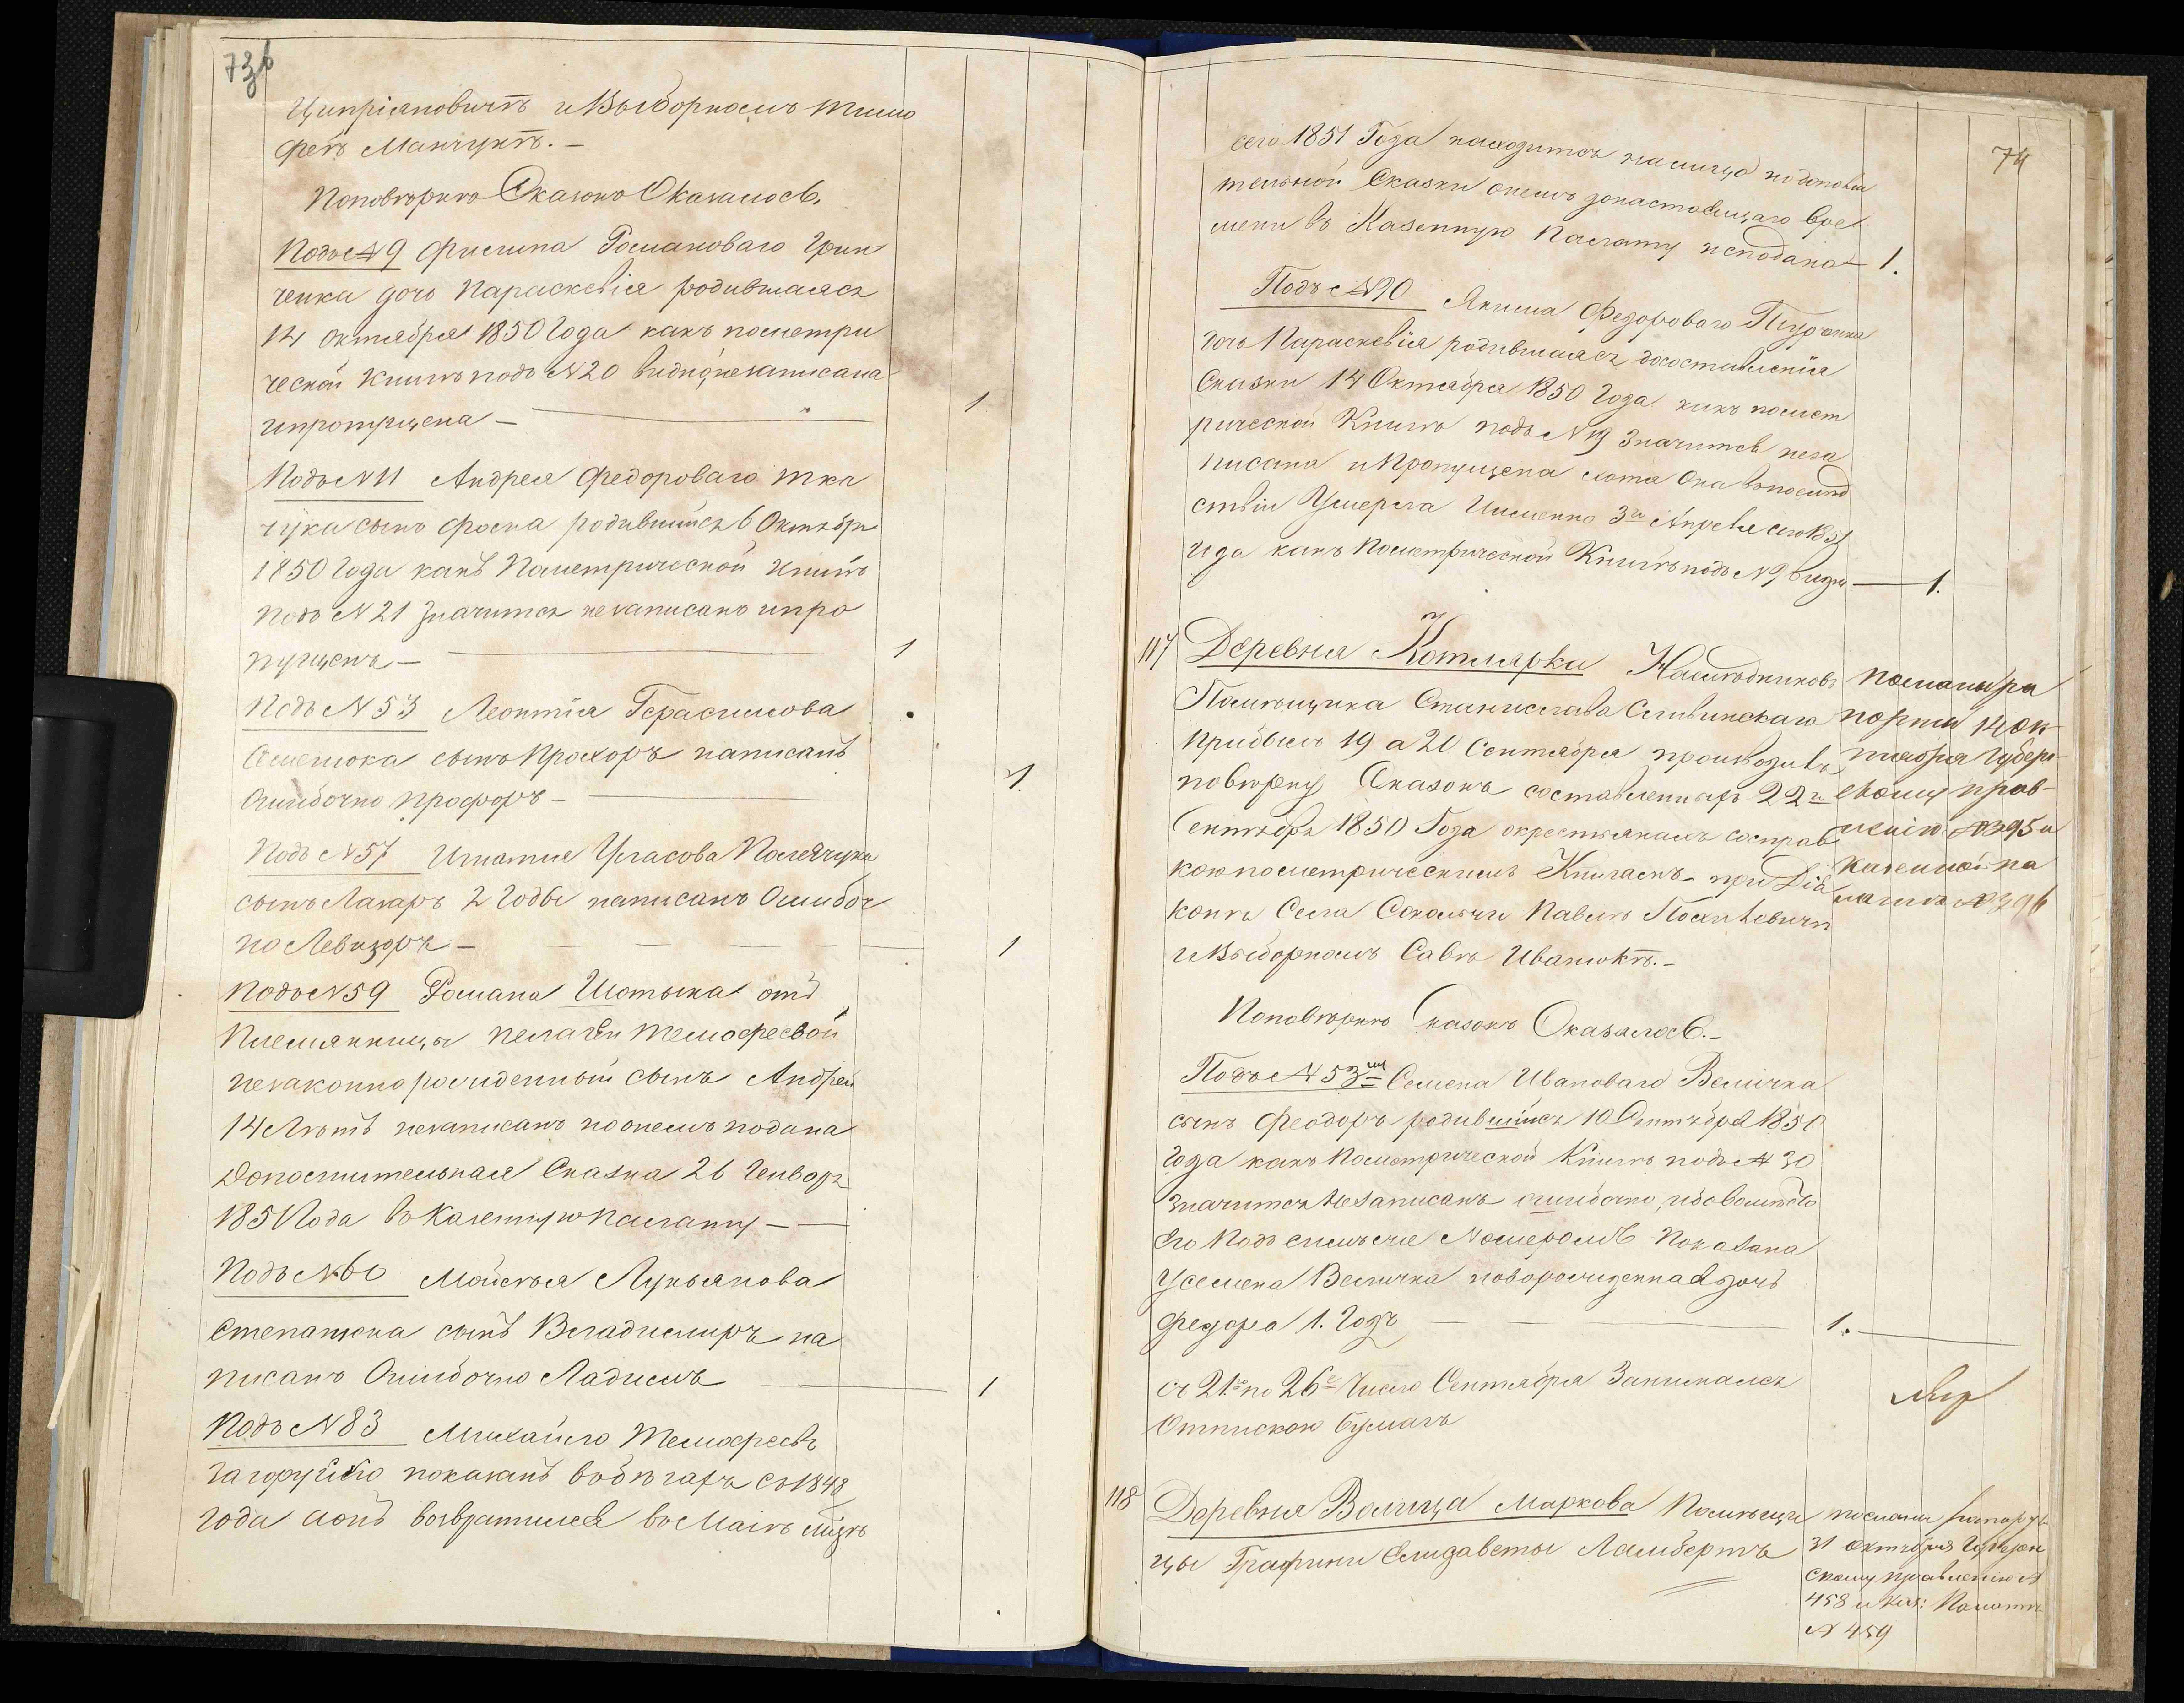 73б
Ципріяновичѣ и Выборномъ Тимо
феѣ Манчукѣ. –
По повѣркѣ Сказокъ Оказалось.
Подъ № 9 Филипа Романоваго Грин
ченка дочь Параскевія родившаясь
14 октября 1850 Года какъ по метри
ческой Книгѣ подъ № 20 видно, незаписана
и пропущена – 1
Подъ № 11 Андрея Федороваго Тка
чука сынъ Фока родившійсь 6 Октября
1850 Года какъ По метрической Книгѣ
подъ № 21 Значится незаписанъ и про
пущенъ – 1
Подъ № 53 Леонтія Герасимова
Семенюка сынъ Прохоръ написанъ
Ошибочно Профоръ – 1
Подъ № 57 Игнатія Власова Полячука
сынъ Лазаръ 2 Годы написанъ Ошибоч
но Левизоръ – 1
Подъ № 59 Романа Шотыка отъ
Племянницы Пелагеи Темофеевой
незаконнорожденный сынъ Андрей
14 Лѣтъ незаписанъ но о немъ подана
Дополнительная Сказка 26 Генворя
1851 Года въ Казенную Палату –
Подъ № 60 Мойсѣя Лукьянова
Степанюка сынъ Владимиръ на
писанъ Ошибочно Ладимъ 1
Подъ № 83 Михайло Темофеевъ
показанъ въ бѣгахъ съ 1848
года а онъ возвратился въ Маіѣ мцѣ
74
сего 1851 Года находится на лицо но дополни
тельной Сказки о немъ до настоящаго вре
мени въ Казенную Палату не подано – 1.
Подъ № 90 Якима Федороваго
дочь Параскевія родившаясь до составленія
Сказки 14 Октября 1850 Года какъ по мет
рической Книгѣ подъ № 19 Значится неза
писана и Пропущена хотя Она въ послѣд
ствіи Умерла Именно 3го Апреля сего 1851
Года какъ По метрической Книгѣ подъ № 9 видно – 1.
117 Деревня Котлярки Наслѣдниковъ
Помѣщика Станислава Сливинскаго
Прибылъ 19 а 20 Сентября производилъ
повѣрку Сказокъ составленныхъ 22го
Сентября 1850 Года о крестьянахъ со справ
кою по метрическимъ Книгамъ – при Дія
конѣ Села Соколчи Павлѣ
и Выборномъ Савѣ Иванюкѣ. –
посланы ра
порты 14 ок
тября Губерн
скому прав
ленію № 395 и
Казенной па
латѣ № 396
По повѣркѣ Сказокъ Оказалось. –
Подъ № 53мъ Семена Ивановаго Величка
сынъ Феодоръ родившійсь 10 Октября 1850
Года какъ По метрической Книгѣ подъ № 30
Значится Незаписанъ ошибочно, ибо вмѣсто
Его Подъ симъ же Номеромъ Показана
у Семена Величка новорожденная дочь
Федора 1. Годъ – 1.
съ 21го по 26е Число Сентября Занимался
Отпискою бумагъ
118 Деревня Волица Маркова Помѣщи
цы Графини Елизаветы Ламбертъ
посланы рапорты
31 октября Губерн
скому правленію №
458 и Каз: Палатѣ
№ 459